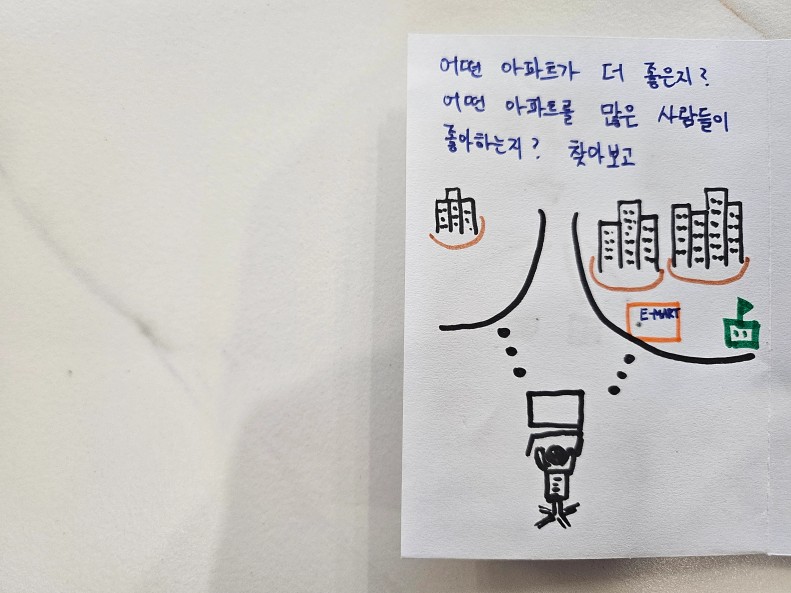 어떤 아파트가 더 좋은지?
어떤 아파트를 많은 사람들이
좋아하는지? 찾아보고
E-MART